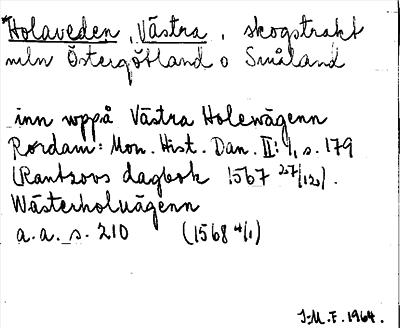 *Holaveden, Västra, skogstrakt
mln Östergötland o Småland
inn wppå Västra Holewägenn
Rørdam: Mon. Hist. Dan. II: 1, s. 179
(Rantzovs dagbok 1567 27/12).
Wästerholuägenn
a.a. s. 210 (1568 4/1)
J.M.F. 1964.